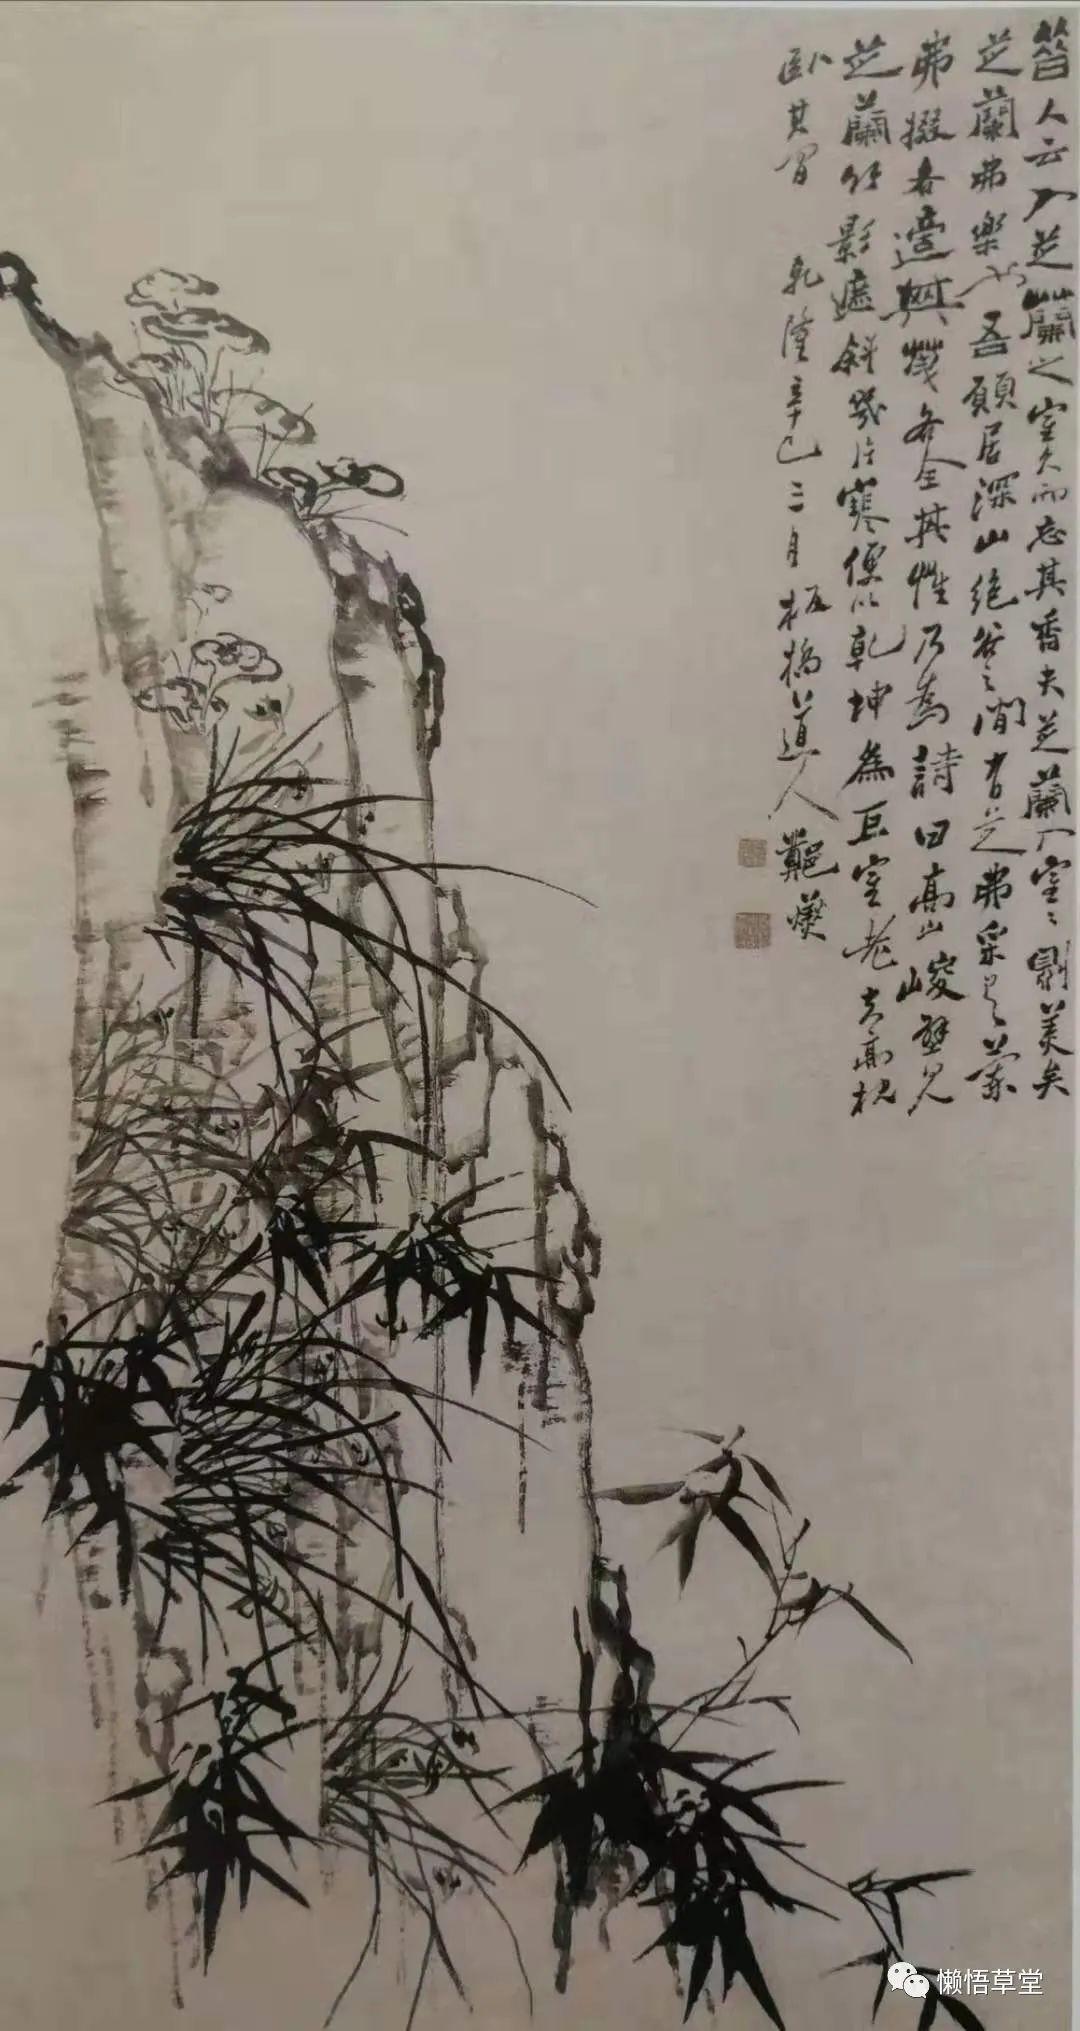 昔人云入芝蘭之室久而忘其香夫芝蘭入室室則美矣
芝蘭弗樂也吾願居深山絕谷之間有芝弗采有蘭
弗掇各適各全其性乃為詩曰高山峻壁見
芝蘭竹影遮斜幾片寒便以乾坤為巨室老夫高枕
臥其間 乾隆辛巳三月板橋道人鄭燮
懒悟草堂